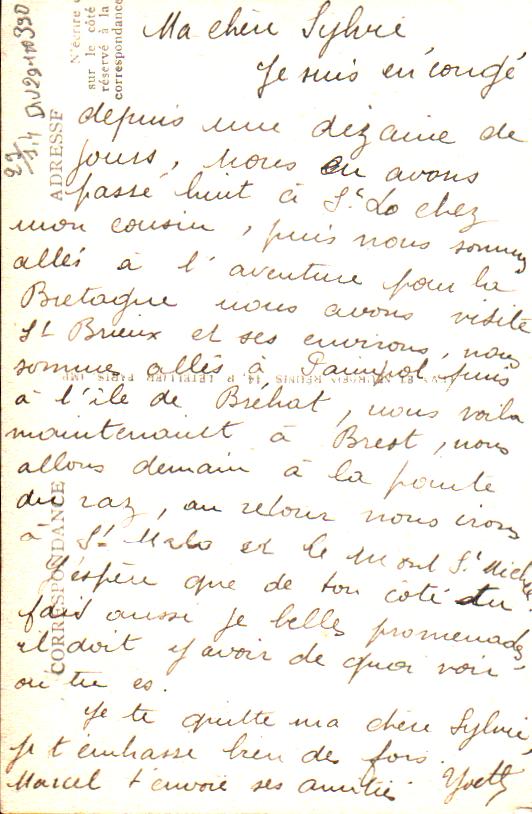 Ma chère Sylvie
Je suis en congé
depuis une dizaine de
jours, nous en avons
passé huit à St Lo chez
mon cousin, puis nous sommes
allés à l'aventure pour la
Bretagne nous avons visité
St Brieux et ses environs, nous
sommes allés à Paimpol puis
à l'ile de Bréhat, nous voila
maintenant à Brest, nous
allons demain à la pointe
du raz, au retour nous irons
à St Malo et le Mont St Michel
J'espère que de ton côté tu
fais aussi de belles promenades
il doit y avoir de quoi voir
où tu es.
Je te quitte ma chère Sylvie
je t'embrasse bien des fois.
Marcel t'envoie ses amitiés Yvette
N'écrire
sur le côté
réservé à la
correspondance
ADRESSE
CORRESPONDANCE